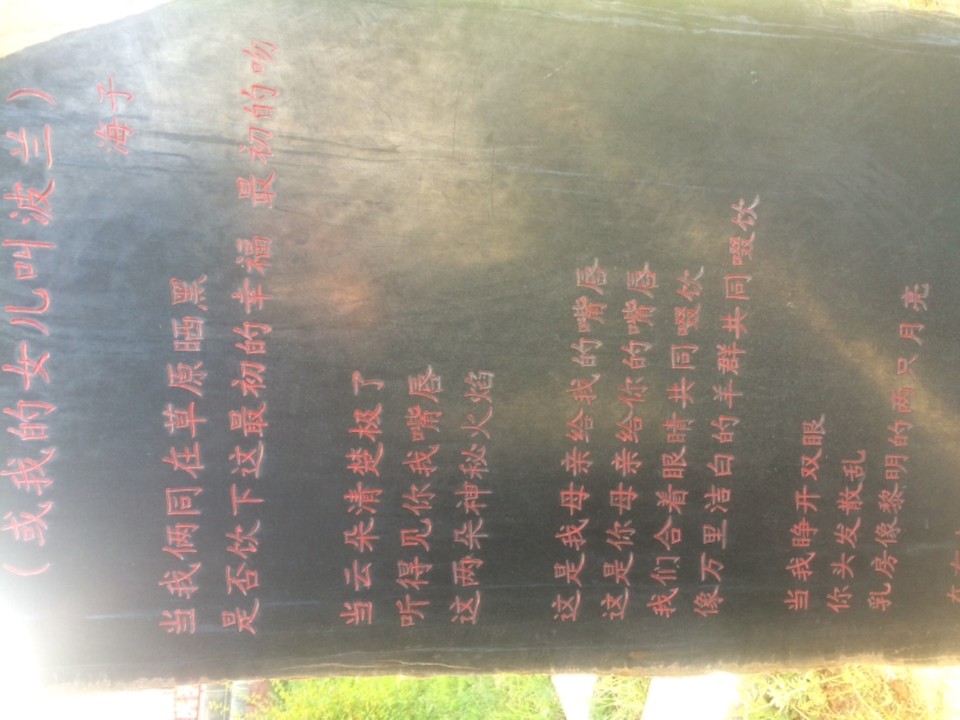 （或我的女儿叫波兰）
海子
当我俩同在草原晒黑
是否饮下这最初的幸福 最初的吻
当云朵清楚极了
听得见你我嘴唇
这两朵神秘火焰
这是我母亲给我的嘴唇
这是你母亲给你的嘴唇
我们合着眼睛共同啜饮
像万里洁白的羊群共同啜饮
当我睁开双眼
你头发散乱
乳房像黎明的两只月亮